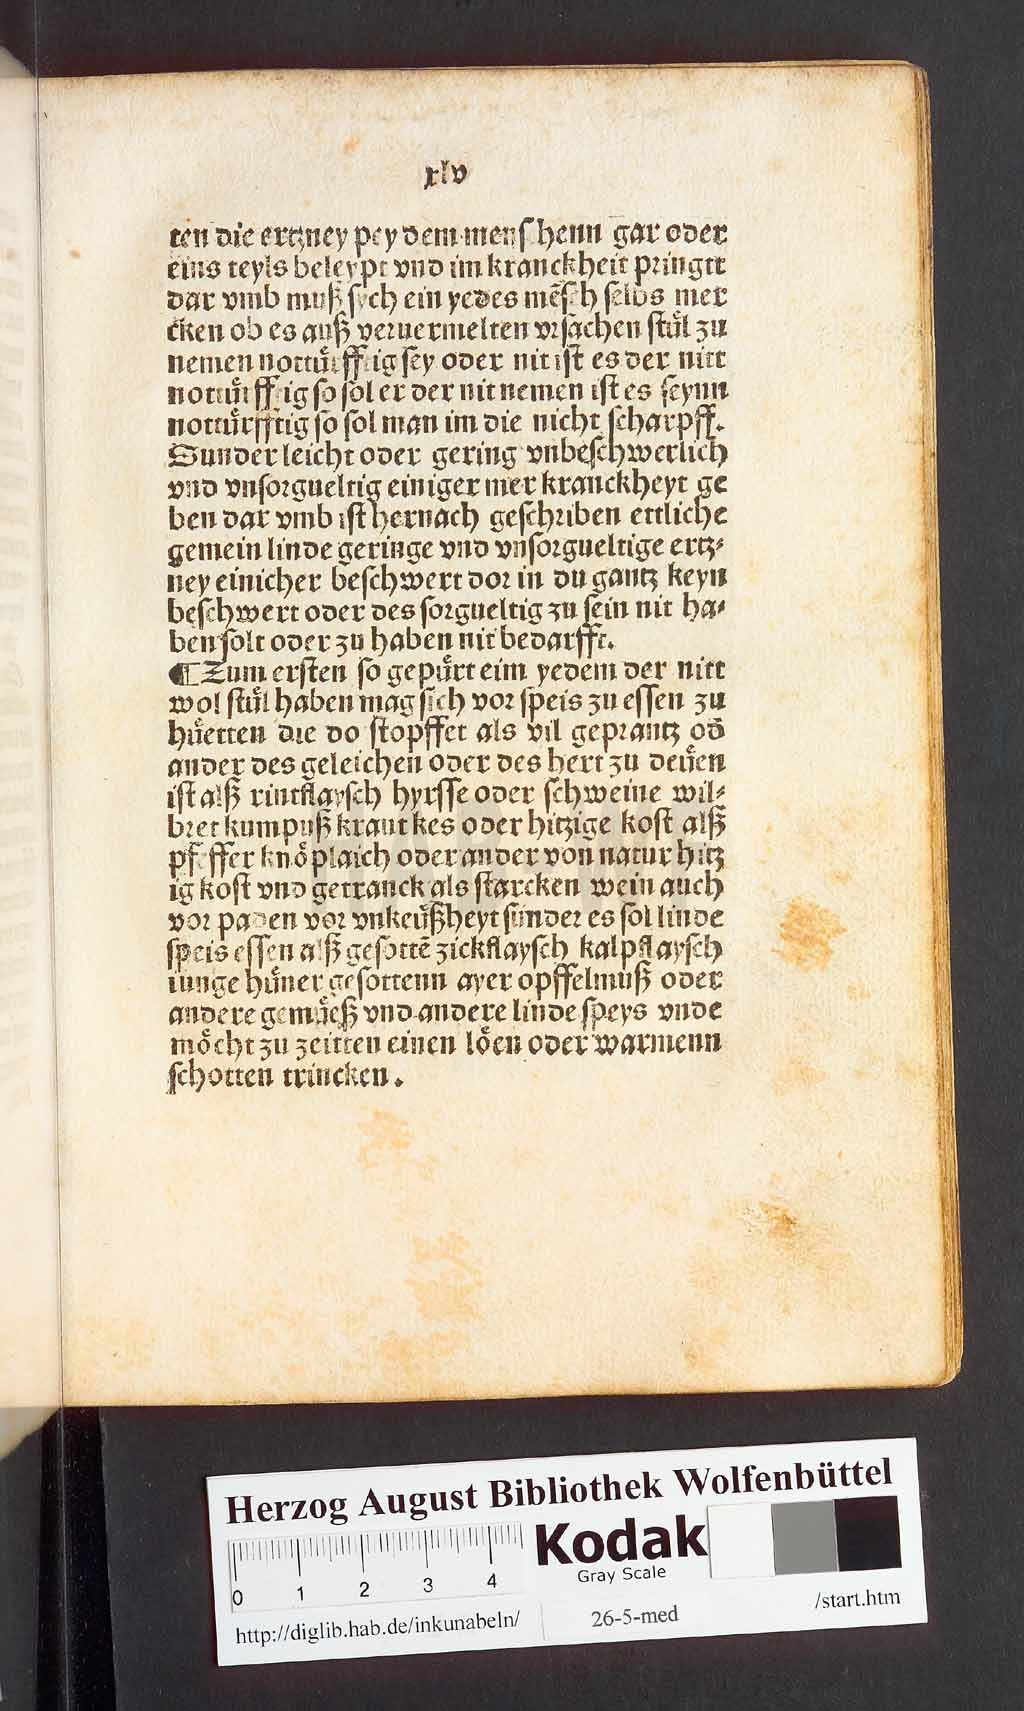 xlv
ten die ertzney pey dem menſchenn gar oder
eins teyls beleypt vnd im kranckheit pringtt
dar vmb muß ſych ein yedes mēſch ſelbs mer
cken ob es auß veruermelten vrſachen ſtůl zu
nemen nottürfftig ſey oder nit iſt es der nitt
nottürfftig ſo ſol er der nit nemen iſt es ſeynn
nottürfftig ſo ſol man im die nicht ſcharpff.
Sunder leicht oder gering vnbeſchwerlich
vnd vnſorgueltig einiger mer kranckheyt ge
ben dar vmb iſt hernach geſchriben ettliche
gemein linde geringe vnd vnſorgueltige ertz⸗
ney einicher beſchwert dor in du gantz keyn
beſchwert oder des ſorgueltig zu ſein nit ha⸗
ben ſolt oder zu haben nit bedarfft.
¶ Zum erſten ſo gepürt eim yedem der nitt
wol ſtůl haben mag ſich vor ſpeis zu eſſen zu
hüetten die do ſtopffet als vil geprantz od̄
ander des geleichen oder des hert zu deüen
iſt alß rintflayſch hyrſſe oder ſchweine wil⸗
bret kumpuß kraut kes oder hitzige koſt alß
pfeffer knöplaich oder ander von natur hitz
ig koſt vnd getranck als ſtarcken wein auch
vor paden vor vnkeüßheyt ſunder es ſol linde
ſpeis eſſen alß geſottē zickflayſch kalpflayſch
iunge hüner geſottenn ayer opffelmuß oder
andere gemüeß vnd andere linde ſpeys vnde
möcht zu zeitten einen löen oder warmenn
ſchotten trincken.
Herzog August Bibliothek Wolfenbüttel
Kodak
Gray Scale
0 1 2 3 4
http://diglib.hab.de/inkunabeln/ 26-5-med /start.htm